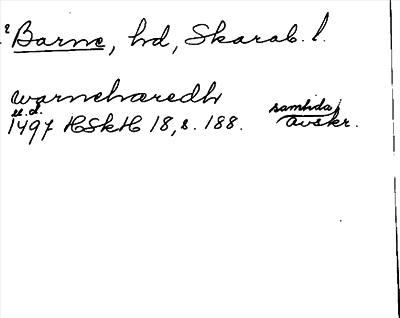 Barne, hd, Skarab. l.
warnehæredh
u.d.
1497 HSkH 18, s. 188. samtida avskr.